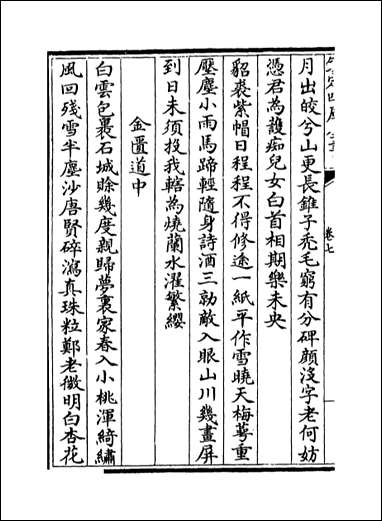 卷七
月出皎兮山更長錐子禿毛窮有分碑顔沒字老何妨
憑君為護痴兒女白首相期樂未央
貂裘紫帽日程程不得修途一紙平作雪曉天梅萼重
壓塵小雨馬蹄輕隨身詩酒三勍敵入眼山川幾畫屏
到日未須投我轄為燒蘭水濯繁纓
金匱道中
白雲包裹石城賒幾度親歸夢裏家春入小桃渾綺繡
風回殘雪半塵沙唐賢碎瀉真珠粒鄭老微明白杏花